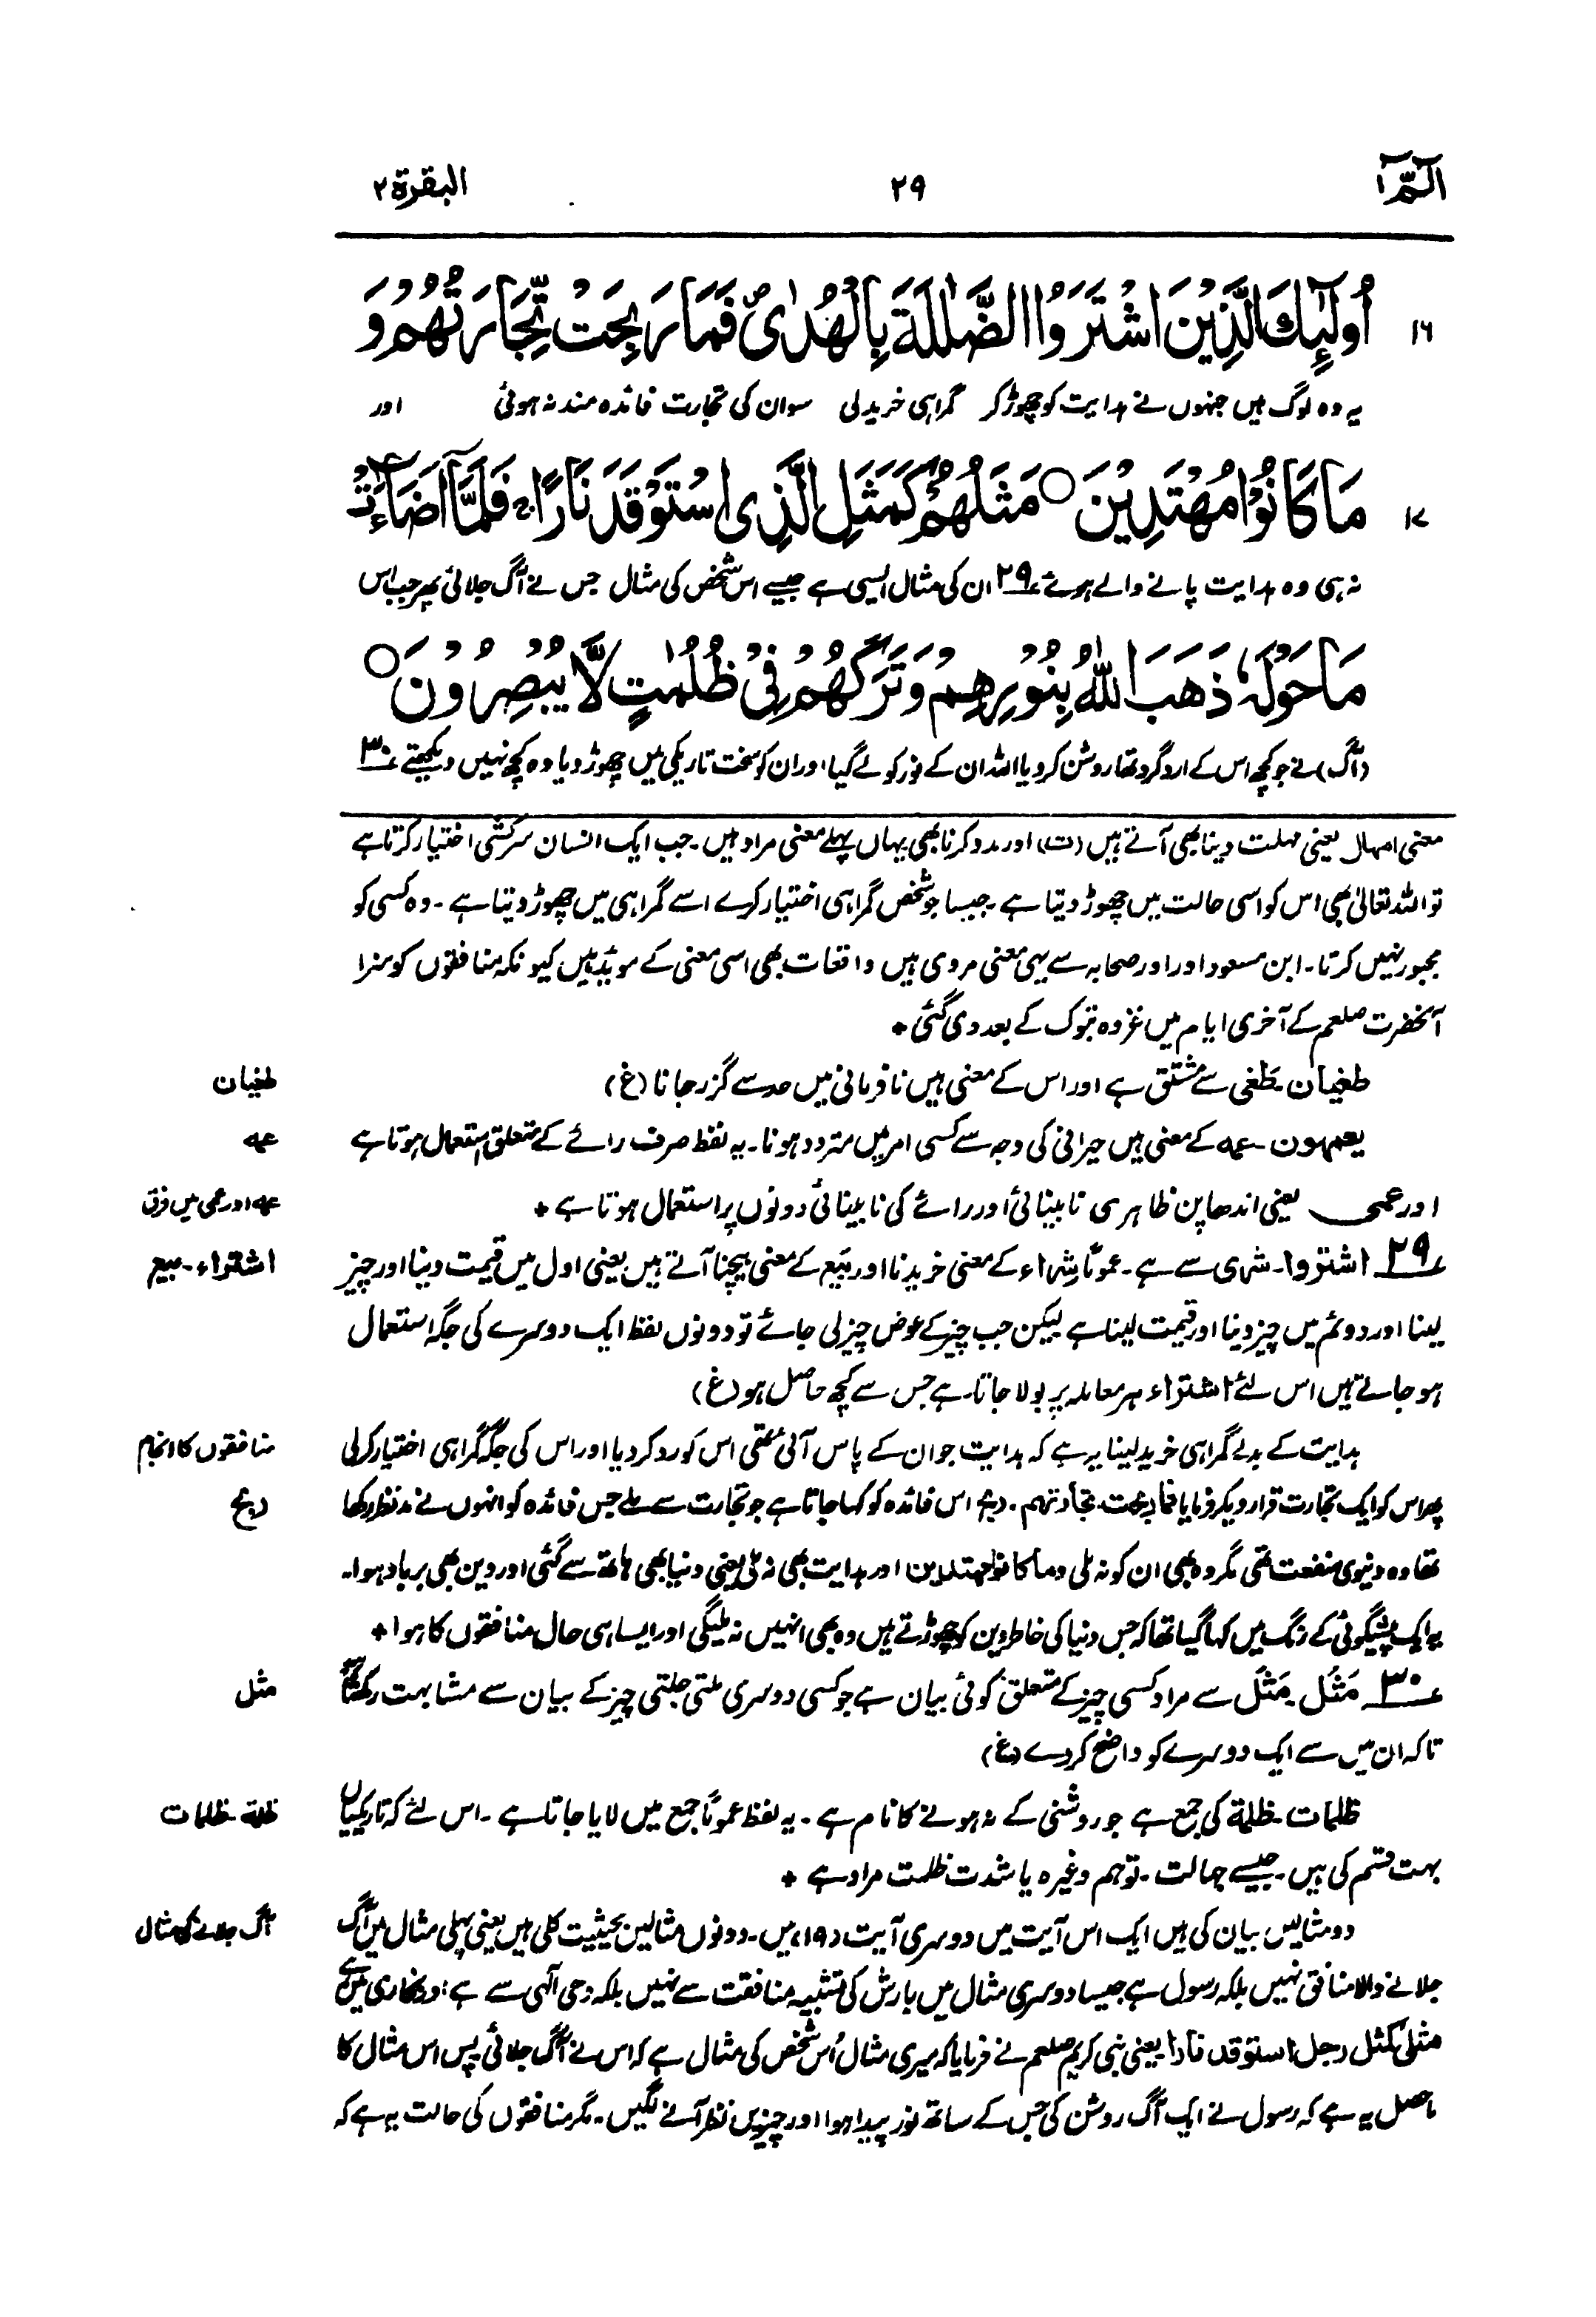 الٓمّٓ ۱
۲۹
البقرة ۲
۱۶
أُولَٰٓئِكَ الَّذِيْنَ اشْتَرَوُا الضَّلٰلَةَ بِالْهُدٰى ۖ فَمَا رَبِحَتْ تِّجَارَتُهُمْ وَ
یہ وہ لوگ ہیں جنہوں نے ہدایت کو چھوڑ کر گمراہی خرید لی سو ان کی تجارت فائدہ مند نہ ہوئی اور
۱۷
مَا كَانُوْا مُهْتَدِيْنَ ○ مَثَلُهُمْ كَمَثَلِ الَّذِى اسْتَوْقَدَ نَارًا ۚ فَلَمَّآ اَضَآءَتْ
نہ ہی وہ ہدایت پانے والے ہوئے ۲۹ ان کی مثال ایسی ہے جیسے اس شخص کی مثال جس نے آگ جلائی پھر جب اس
مَا حَوْلَهٗ ذَهَبَ اللّٰهُ بِنُوْرِهِمْ وَتَرَكَهُمْ فِيْ ظُلُمٰتٍ لَّا يُبْصِرُوْنَ ○
(آگ) نے جو کچھ اس کے ارد گرد تھا روشن کر دیا اللہ ان کے نور کو لے گیا اور ان کو سخت تاریکی میں چھوڑ دیا وہ کچھ نہیں دیکھتے ۳۰
معنی امہال یعنی مہلت دینا بھی آتے ہیں (ت) اور مدد کرنا بھی یہاں پہلے معنی مراد ہیں۔ جب ایک انسان سرکشی اختیار کرتا ہے
تو اللہ تعالیٰ بھی اس کو اسی حالت میں چھوڑ دیتا ہے۔ جیسا جو شخص گمراہی اختیار کرے اسے گمراہی میں چھوڑ دیتا ہے۔ وہ کسی کو
مجبور نہیں کرتا۔ ابن مسعود اور اور صحابہ سے یہی معنی مروی ہیں واقعات بھی اسی معنی کے موید ہیں کیونکہ منافقوں کو سزا
آنحضرت صلعم کے آخری ایام میں غزوہ تبوک کے بعد دی گئی +
طغیان۔ طَغٰی سے مشتق ہے اور اس کے معنی ہیں نافرمانی میں حد سے گزر جانا (غ)
طغیان
یعمہون۔ عمہ کے معنی ہیں حیرانی کی وجہ سے کسی امر میں متردد ہونا۔ یہ لفظ صرف رائے کے متعلق استعمال ہوتا ہے
عمہ
اور عمی یعنی اندھاپن ظاہری نابینائی اور رائے کی نابینائی دونوں پر استعمال ہوتا ہے +
عمہ اور عمی میں فرق
۲۹ اشتروا۔ شری سے ہے۔ عموماً شراء کے معنی خریدنا اور بَیع کے معنی بیچنا آتے ہیں یعنی اول میں قیمت دینا اور چیز
اشتراء۔ بیع
لینا اور دوئم میں چیز دینا اور قیمت لینا ہے لیکن جب چیز کے عوض چیز لی جائے تو دونوں لفظ ایک دوسرے کی جگہ استعمال
ہو جاتے ہیں اس لئے اشتراء ہر معاملہ پر بولا جاتا ہے جس سے کچھ حاصل ہو (غ)
ہدایت کے بدلے گمراہی خرید لینا یہ ہے کہ ہدایت جو ان کے پاس آئی تھی اس کو رد کر دیا اور اس کی جگہ گمراہی اختیار کر لی
منافقوں کا انجام
پھر اس کو ایک تجارت قرار دیکر فرمایا فما ربحت تجارتهم۔ ربح اس فائدہ کو کہا جاتا ہے جو تجارت سے ملے جس فائدہ کو انہوں نے مدنظر رکھا
ربح
تھا وہ دنیوی منفعت تھی مگر وہ بھی ان کو نہ ملی وما کانوا مهتدین اور ہدایت بھی نہ ملی یعنی دنیا بھی ہاتھ سے گئی اور دین بھی برباد ہوا۔
یہ ایک پیشگوئی کے رنگ میں کہا گیا تھا کہ جس دنیا کی خاطر دین کو چھوڑتے ہیں وہ بھی انہیں نہ ملیگی اور ایسا ہی حال منافقوں کا ہوا +
۳۰ مَثَل۔ مَثَل سے مراد کسی چیز کے متعلق کوئی بیان ہے جو کسی دوسری ملتی جلتی چیز کے بیان سے مشابہت رکھتا ہو
مثل
تاکہ ان میں سے ایک دوسرے کو واضح کردے (غ)
ظلمات۔ ظلمة کی جمع ہے جو روشنی کے نہ ہونے کا نام ہے۔ یہ لفظ عموماً جمع میں لایا جاتا ہے۔ اس لئے کہ تاریکیاں
ظلمة۔ ظلمات
بہت قسم کی ہیں۔ جیسے جہالت۔ توہم وغیرہ یا شدت ظلمت مراد ہے +
دو مثالیں بیان کی ہیں ایک اس آیت میں دوسری آیت (۱۹) میں۔ دونوں مثالیں بحیثیت کلی ہیں یعنی پہلی مثال میں آگ
آگ جلانے کی مثال
جلانے والا منافق نہیں بلکہ رسول ہے جیسا دوسری مثال میں بارش کی تشبیہ منافقت سے نہیں بلکہ وحی الٰہی سے ہے اور بخاری میں ہے
مثلی کمثل رجل استوقد نارا یعنی نبی کریم صلعم نے فرمایا کہ میری مثال اُس شخص کی مثال ہے کہ اس نے آگ جلائی پس اس مثال کا
ماحصل یہ ہے کہ رسول نے ایک آگ روشن کی جس کے ساتھ نور پیدا ہوا اور چیزیں نظر آنے لگیں۔ مگر منافقوں کی حالت یہ ہے کہ